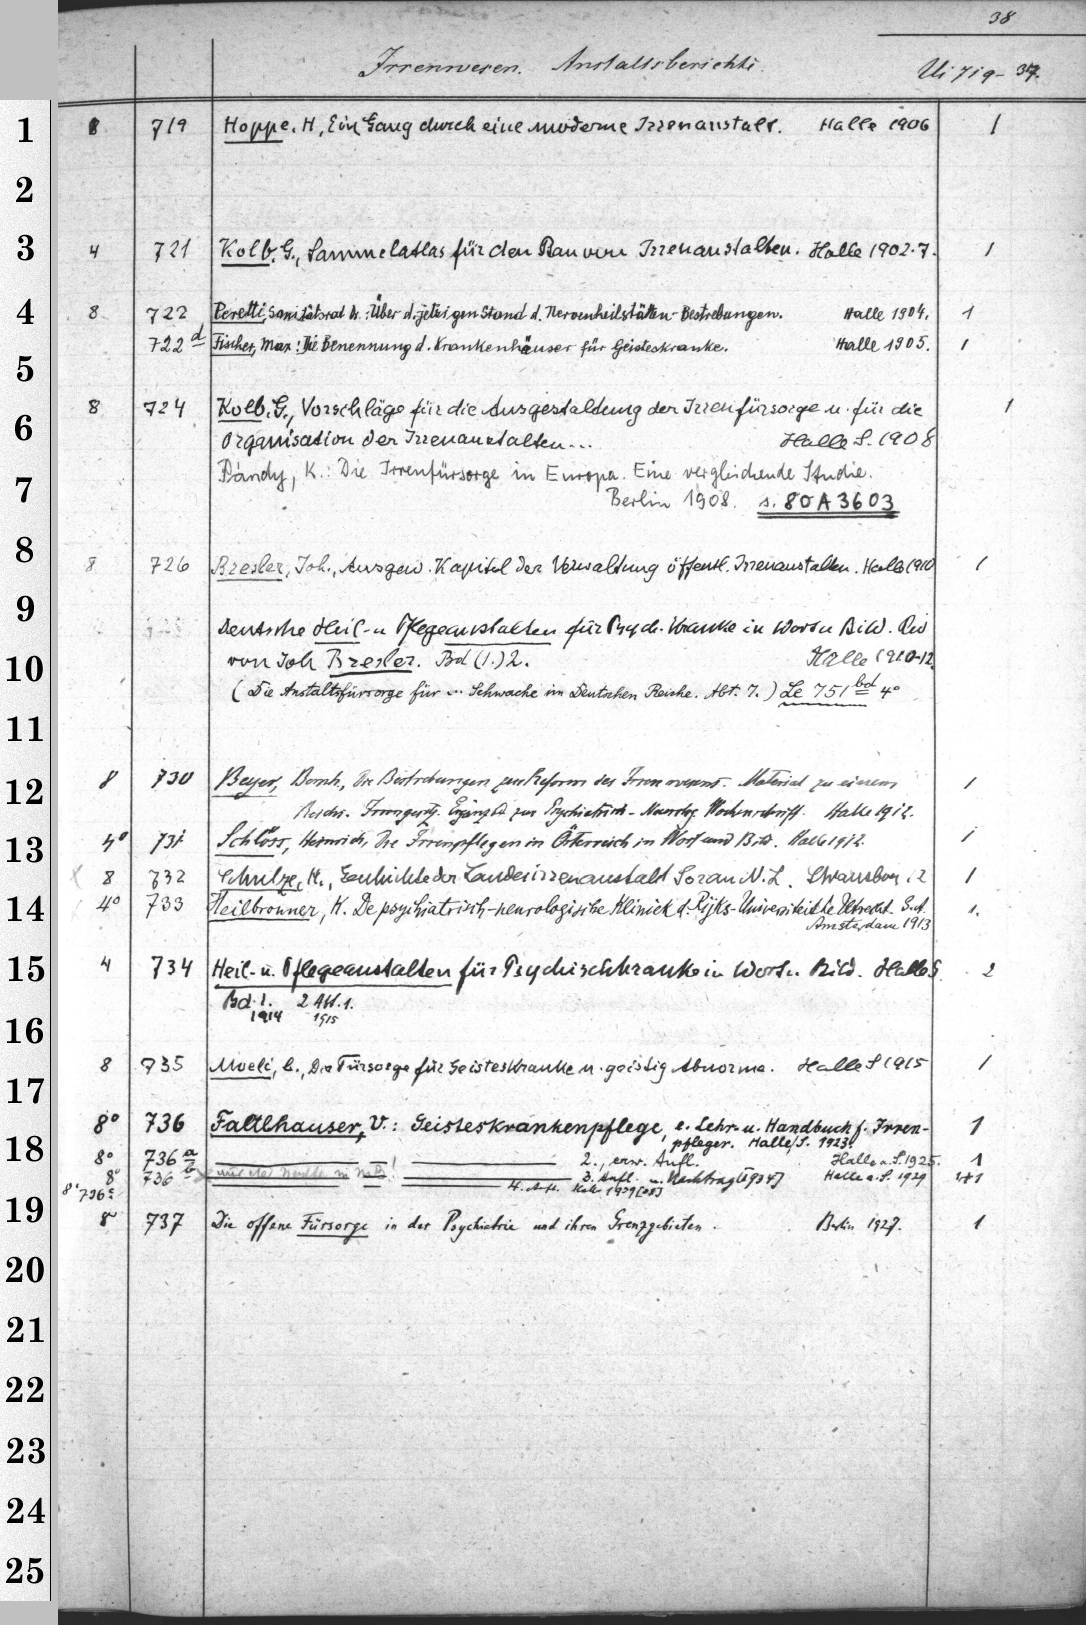 38
Irrenwesen. Anstaltsberichte.
Ui 719-37.
1 8 719 Hoppe, H, Ein Gang durch eine moderne Irrenanstalt. Halle 1906 1
2
3 4 721 Kolb, G., Sammelatlas für den Bau von Irrenanstalten. Halle 1902-7. 1
4 8 722 Peretti, Sanitätsrat Dr.: Über d. jetzigen Stand d. Nervenheilstätten-Bestrebungen. Halle 1904. 1
722 d Fischer, Max: Die Benennung d. Krankenhäuser für Geisteskranke. Halle 1905. 1
5
8 724 Kolb, G., Vorschläge für die Ausgestaltung der Irrenfürsorge u. für die 1
6 Organisation der Irrenanstalten... Halle S. 1908
Pándy, K.: Die Irrenfürsorge in Europa. Eine vergleichende Studie.
7 Berlin 1908. s. 80 A 3603
8
8 726 Bresler, Joh., Ausgew. Kapitel der Verwaltung öffentl. Irrenanstalten. Halle 1910 1
9
Deutsche Heil- u Pflegeanstalten für Psych. Kranke in Wort u Bild. Red
10 von Joh Bresler. Bd (1.) 2. Halle 1910-12.
(Die Anstaltsfürsorge für ... Schwache im Deutschen Reiche. Abt. 7.) Le 751 bd 4°
11
12 8 730 Beyer, Bernh., Die Bestrebungen zur Reform des Irrenwesens. Material zu einem 1
Reichs-Irrengesetz. Ergänzbd zur Psychiatrisch-Neurolog. Wochenschrift. Halle 1912.
13 4° 731 Schlöss, Heinrich, Die Irrenpflege in Österreich in Wort und Bild. Halle 1912. 1
8 732 Schulze, H., Geschichte der Landesirrenanstalt Sorau N. L. 12 1
14 4° 733 Heilbronner, K. De psychiatrisch-neurologische Kliniek d. Rijks-Universiteit te Utrecht. S.A. 1.
Amsterdam 1913
15 4 734 Heil- u. Pflegeanstalten für Psychischkranke in Wort u. Bild. Halle S. 2
Bd. 1. 2 Abt. 1.
1914 1915
16
8 735 Moeli, C., Die Fürsorge für Geisteskranke u. geistig Abnorme. Halle S 1915 1
17
8° 736 Faltlhauser, V.: Geisteskrankenpflege, e. Lehr- u. Handbuch f. Irren- 1
18 pfleger. Halle/S. 1923.
8° 736 a 2., erw. Aufl. Halle a. S. 1925. 1
8° 736 b 3. Aufl. u. Nachtrag [1934] Halle a. S. 1929 1+1
8° 736 c 4. Aufl. Halle 1939
19 8° 737 Die offene Fürsorge in der Psychiatrie und ihren Grenzgebieten. Berlin 1927. 1
20
21
22
23
24
25